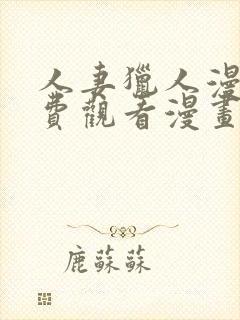 人妻獵人漫
費觀看漫畫
鹿蘇蘇